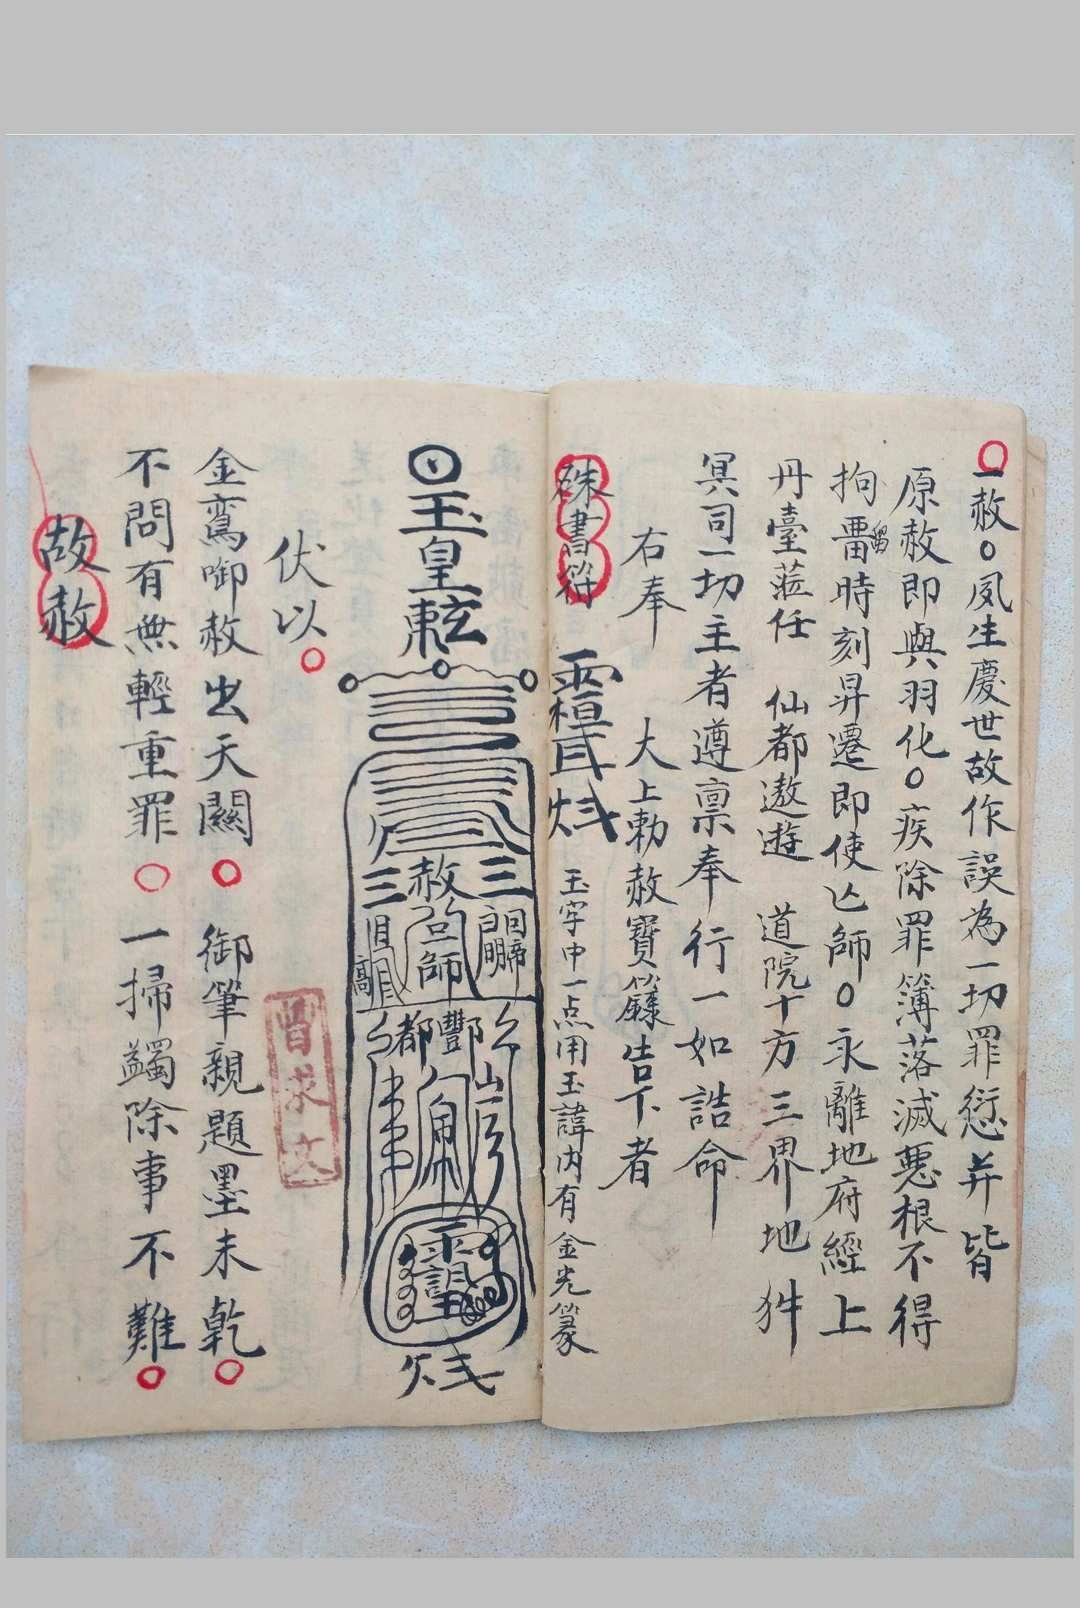 一赦○夙生慶世故作誤為一切罪愆并皆
原赦即與羽化○疾除罪簿落滅惡根不得
拘留時刻昇遷即使亾師○永離地府經上
丹臺蒞任 仙都遨遊 道院十方三界地
冥司一切主者遵禀奉行一如誥命
右奉 大上勅赦寶籙告下者
硃書符
玉字中一点用玉諱内有金光篆
玉皇
赦
亡師
酆都
伏以○
金鸞御赦出天關○御筆親題墨未乾○
不問有無輕重罪○一掃蠲除事不難○
故赦